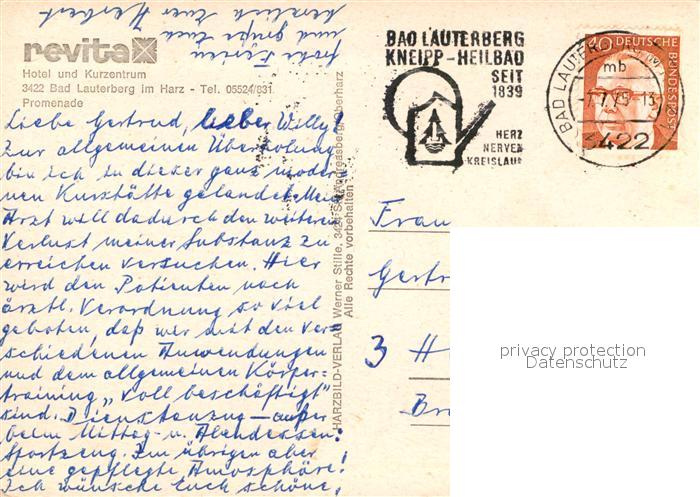 revita
Hotel und Kurzentrum
3422 Bad Lauterberg im Harz - Tel. 05524/831
Promenade
Liebe Gertrud, lieber Willy!
Zur allgemeinen Überholung
bin ich in dieser ganz moder-
nen Kurstätte gelandet. Mein
Arzt will dadurch den weiteren
Verlust meiner Substanz zu
erreichen versuchen. Hier
wird den Patienten nach
ärztl. Verordnung so viel
geboten, daß wir mit den ver-
schiedenen Anwendungen
und dem allgemeinen Körper-
training „voll beschäftigt"
sind. Dienstanzug - außer
beim Mittag- u. Abendessen:
Sportzeug. Im übrigen aber
eine gepflegte Atmosphäre!
Ich wünsche Euch schöne,
frohe Ferien
und grüße Euch
herzlich Euer Herbert
HARZBILD-VERLAG Werner Stille, 3424 St. Andreasberg/Oberharz
Alle Rechte vorbehalten
BAD LAUTERBERG
KNEIPP-HEILBAD
SEIT
1839
HERZ
NERVEN
KREISLAUF
BAD LAUTERB
mb
-7.7.75-13
3422
40 DEUTSCHE BUNDESPOST
Frau
Gertr
3 H
Br
privacy protection
Datenschutz